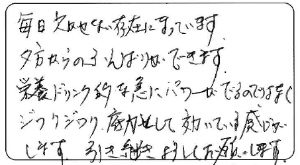 毎日欠かせない存在になっています
夕方からのふんばりができます
栄養ドリンク的な急にパワーがでるのではなく
ジワリジワリ 底力として効いている感じが
します 引き続きよろしくお願いします